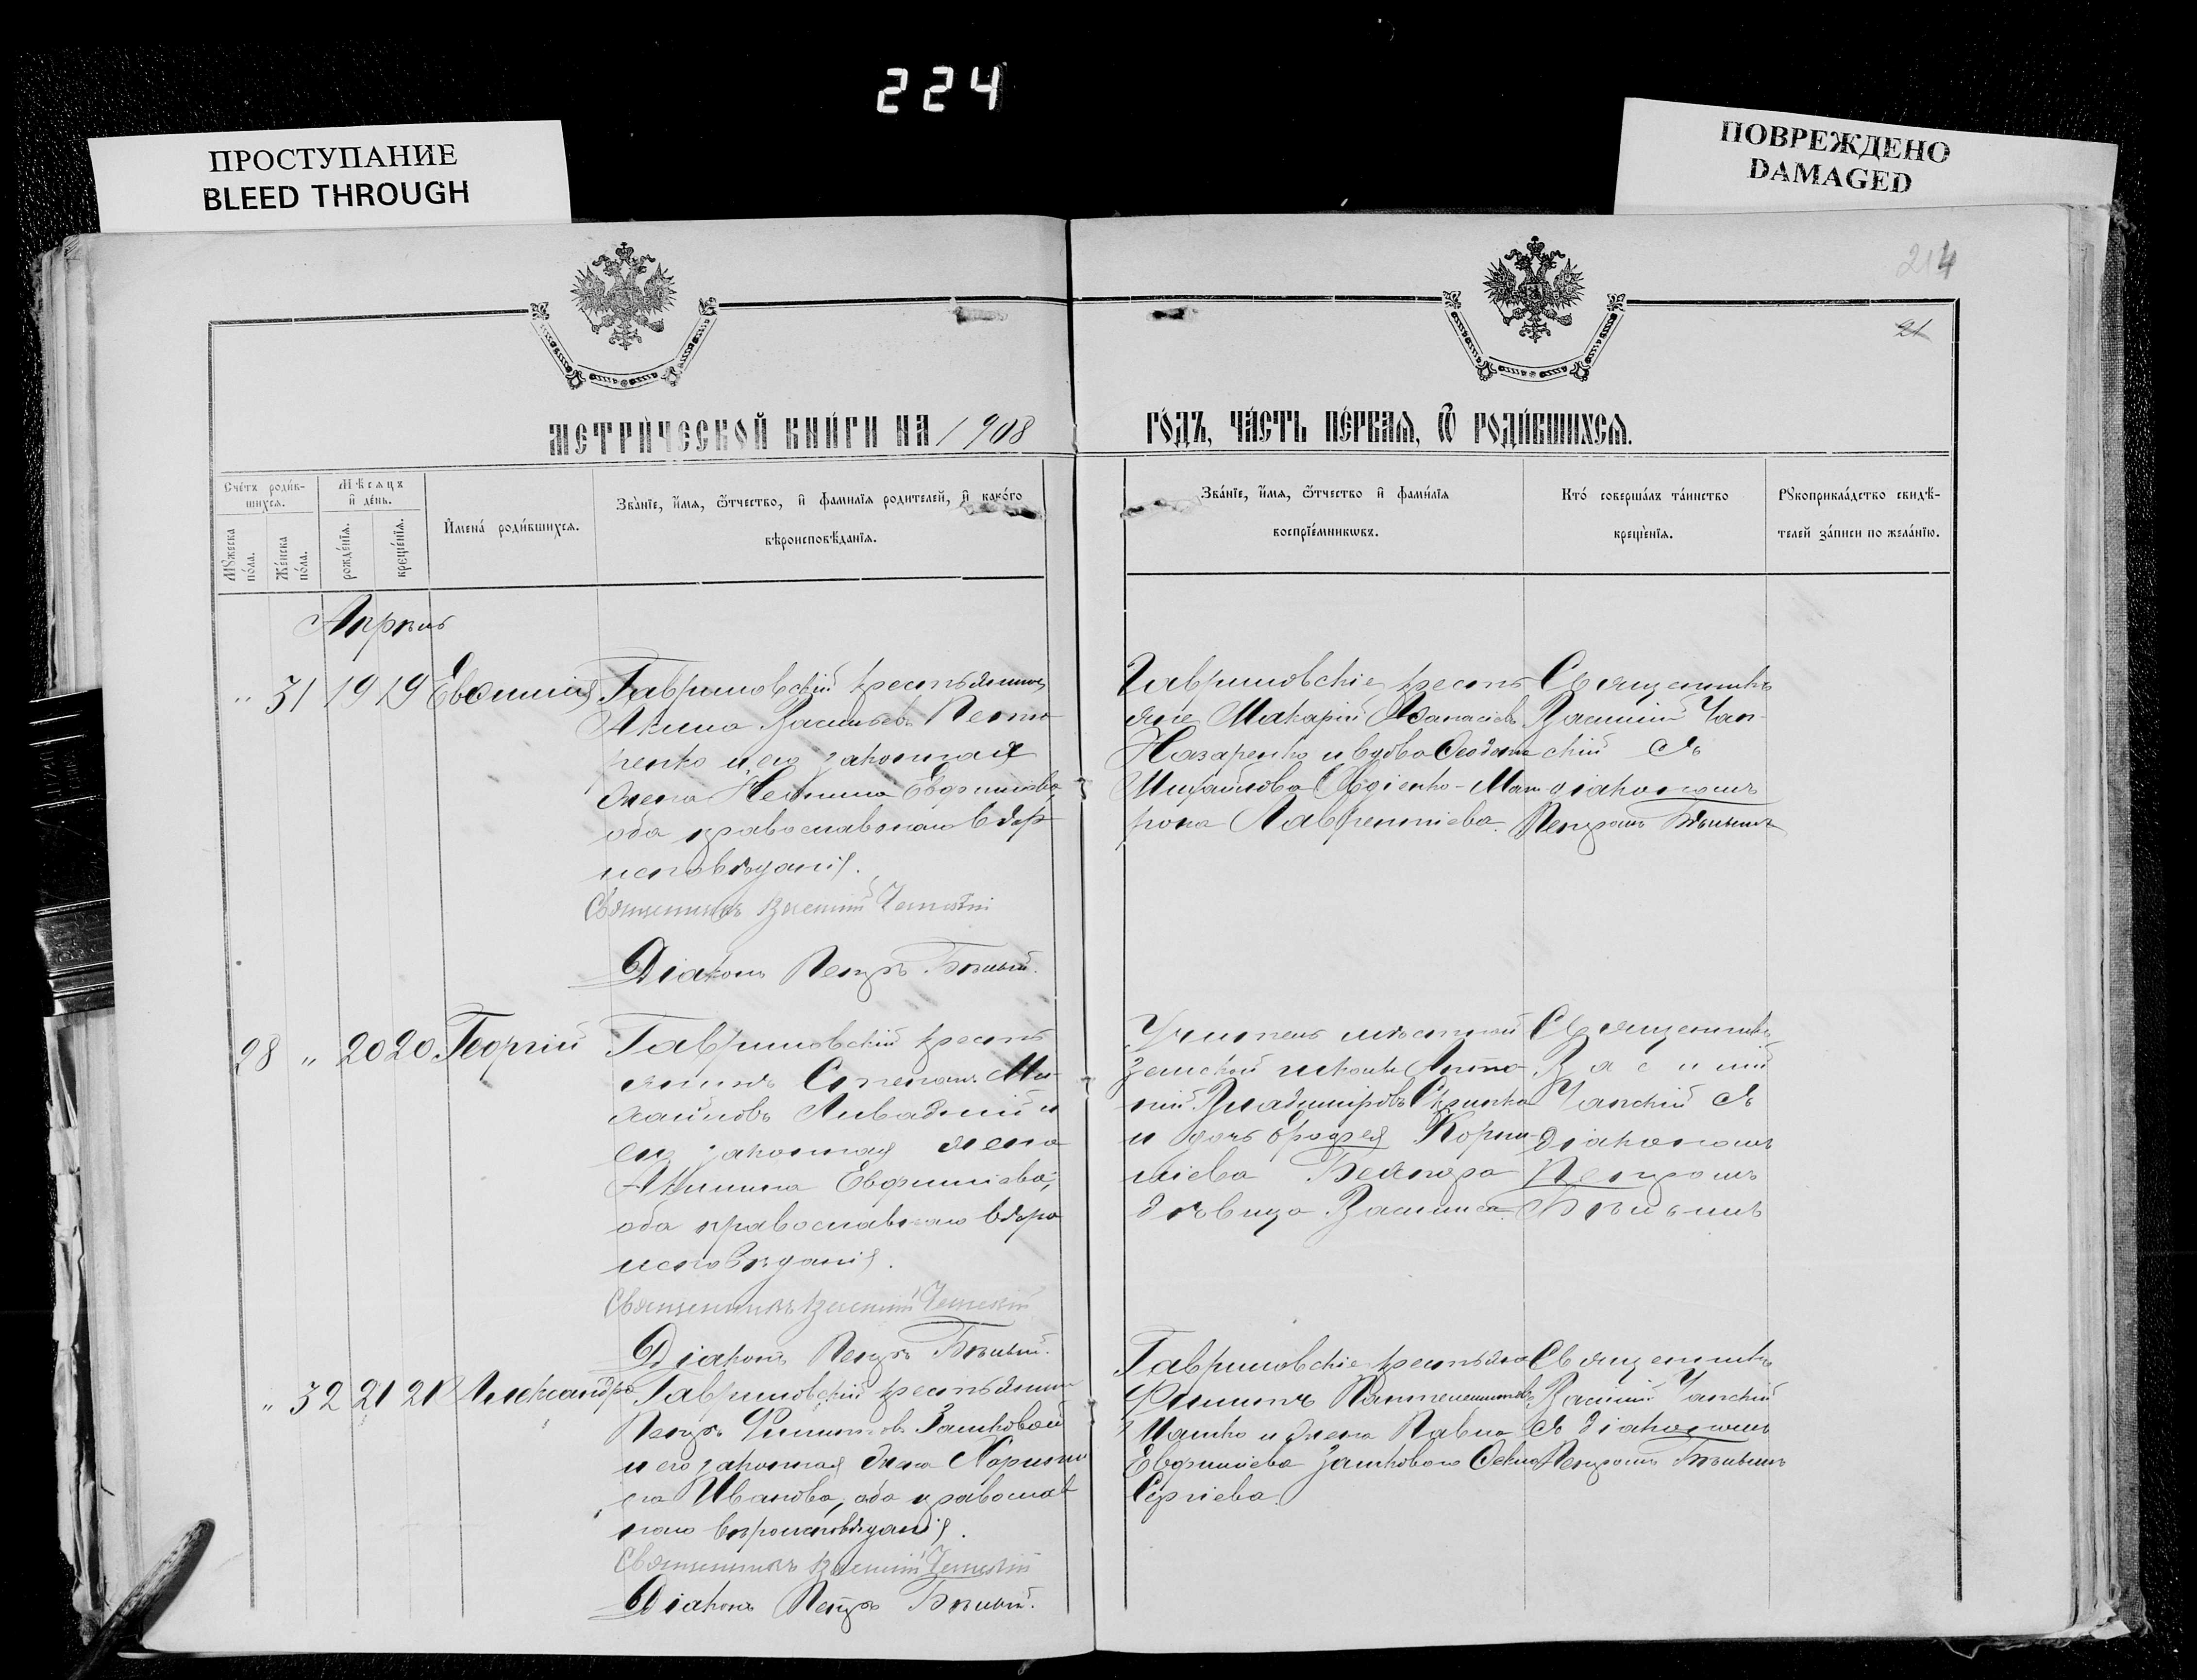 224
ПРОСТУПАНИЕ
BLEED THROUGH
ПОВРЕЖДЕНО
DAMAGED
214
21
МЕТРИ́ЧЕСКОЙ КНИ́ГИ НА 1908
ГО́ДЪ, ЧА́СТЬ ПЕ́РВАѦ, Ѿ РОДИ́ВШИХСѦ.
Сче́тъ роди́в-
шихсѧ.
Мꙋжеска
по́ла.
Же́нска
по́ла.
Мѣсѧцъ
и҆ де́нь.
рожде́нїѧ.
креще́нїѧ.
И҆мена́ роди́вшихсѧ.
Зва́нїе, и҆́мѧ, ѿтчество, и҆ фамилїѧ родителей, и҆ како́го
вѣроисповѣданїѧ.
Зва́нїе, и҆́мѧ, ѿтчество и҆ фами́лїѧ
воспрїе́мникѡвъ.
Кто́ соверша́лъ та́инство
креще́нїѧ.
Рꙋкоприкла́дство свидѣ-
телей за́писи по жела́нїю.
Апрѣль
" 31 19 19 Евѳимія
Гавриловскій крестьянинъ
Акила Васильевъ
ренко и его законная
жена Евфиміева,
оба православнаго вѣр
исповѣданія.
Священникъ Василій
Діаконъ Петръ Бѣлый.
Гавриловскіе кресть
яне Макарій Аѳанасіевъ
Назаренко и вдова
Михайлова Мат
рона Лаврентіева.
Священникъ
Василій Чап-
скій съ
діакономъ
Петромъ Бѣлымъ
28 " 20 20 Георгій
Гавриловскій кресть
янинъ Степанъ Ми-
хайловъ и
его законная жена
Акилина Евфиміева,
оба православнаго вѣро
исповѣданія.
Священникъ Василій
Діаконъ Петръ Бѣлый.
Учитель мѣстной
Земской школы Анто-
ній Владиміровъ
и дочь Корни-
ліева
дѣвица Василиса.
Священникъ
Василій
Чапскій съ
діакономъ
Петромъ
Бѣлымъ
" 32 21 21 Александра
Гавриловскій крестьянинъ
Петръ Филипповъ Зашковой
и его законная жена Харити
на Иванова, оба православ
наго вѣроисповѣданія.
Священникъ Василій
Діаконъ Петръ Бѣлый.
Гавриловскіе крестьяне
Филиппъ Пантелеимоновъ
Машко и жена Павла
Евфиміева Зашковаго
Сергіева.
Священникъ
Василій Чапскій
съ діакономъ
Петромъ Бѣлымъ